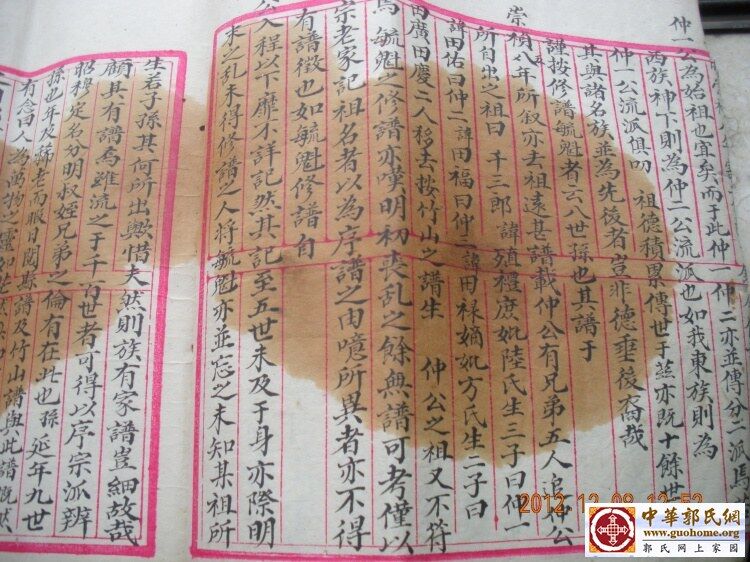 仲一公為始祖也宜矣而于此仲一仲二亦並傳分二派馬
西族神下則為仲二公流派也如我東族則為
仲一公流派俱叨 祖德積累傳世于茲亦既十餘世
其與諸名族並為先後者豈非德垂後裔哉
謹按修譜毓魁者云八世孫也其譜于
崇禎八年所叙亦去祖遠甚譜載仲公有兄弟五人追仲公
所自出之祖曰千三郎諱殖禮庶妣陸氏生三子曰仲一
諱田佑曰仲二諱田福曰仲三諱田禄嫡妣方氏生二子曰
田廣田慶二人移去按竹山之譜生 仲公之祖又不符
馬毓魁之修譜亦嘆明初喪乱之餘無譜可考僅以
宗老家記祖名者以為序譜之由噫所異者亦不得
有譜徵也如毓魁修譜自
公入程以下靡不詳記然其記至五世未及于身亦際明
末之乱未得修譜之人將毓魁亦並忘之未知某祖所
生若子孫其何所出歟惜夫然則族有家譜豈細故哉
顧其有譜馬雖流之于千百世者可得以序宗派辨
昭穆定名分明叔姪兄弟之倫有在此也孫延年九世
孫也年及稀老而眼日閱斯譜及竹山譜與此譜慨然
有念曰人為萬物之靈
2012 12 09 12:52
中華郭氏網
www.guohome.org
郭氏网上家园